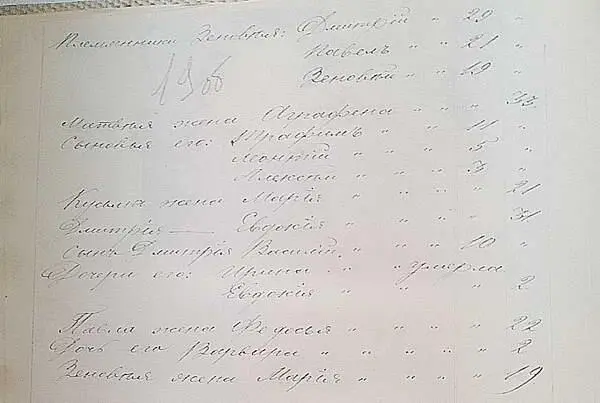 Племянники Зеновiя: Дмитрiй " " 29 "
Павелъ " " 21 "
Зеновiй " " 19 "
Матвѣя жена Агнафена " " " 33
Сыновья его: Трафимъ " " 11 "
Леонтiй " " 5 "
Алексѣй " " 3 "
Кузьма жена Марiя " " " " 21
Дмитрiя — Евдокiя " " " " 31
Сынъ Дмитрiя Василiй " " 10 "
Дочери его: Ирина " " умерла
Евдокiя " " " " 2
Павла жена Федосья " " " 22
Дочь его Варвара " " " " 2
Зеновiя жена Марiя " " " " 19